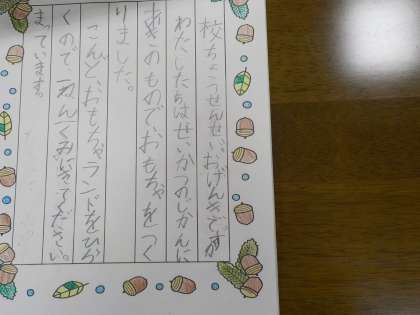 校ちょうせんせい、おげんきですか
わたしたちはせいかつのじかんに
あきのもので、おもちゃをつく
りました。
こんど、おもちゃランドをひら
くので一ねん一くみにきてください。
まっています。